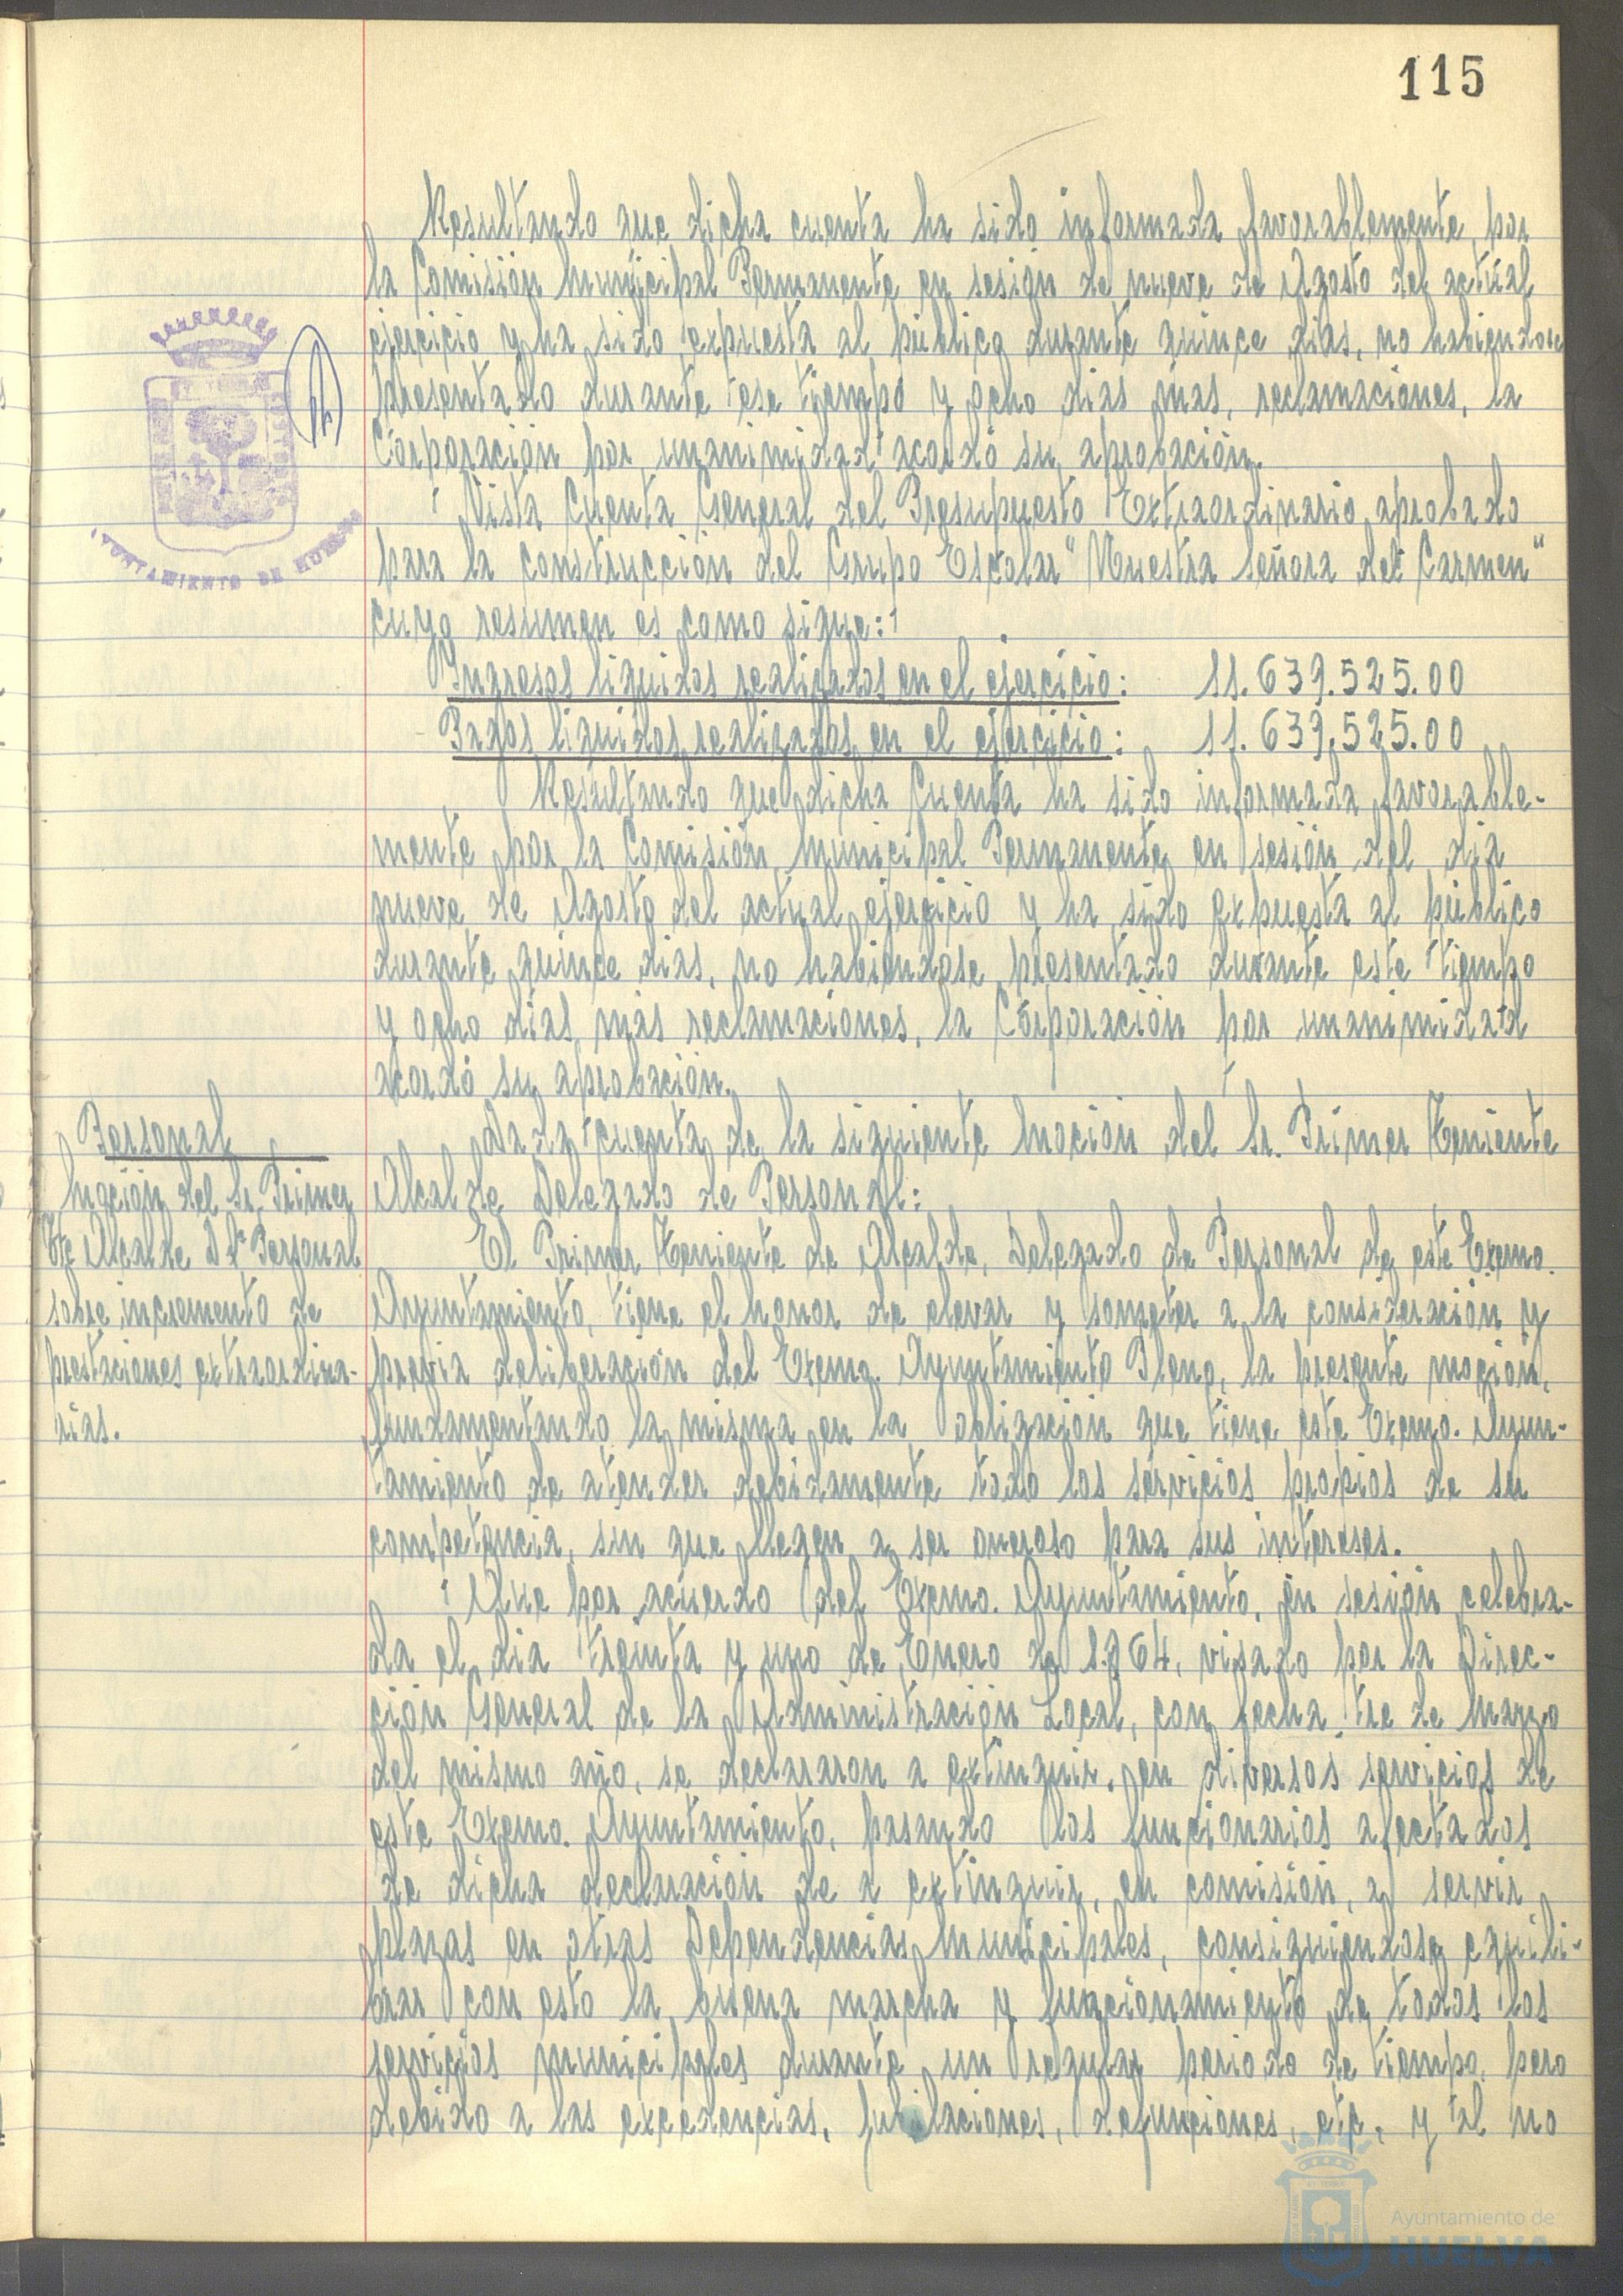 115
Resultando que dicha cuenta ha sido informada favorablemente por
la Comisión Municipal Permanente en sesión de nueve de Agosto del actual
ejercicio y ha sido expuesta al público durante quince dias, no habiendose
presentado durante ese tiempo y ocho dias mas, reclamaciones, la
Corporación por unanimidad acordó su aprobación.
Vista Cuenta General del Presupuesto Extraordinario aprobado
para la construcción del Grupo Escolar "Nuestra Señora del Carmen"
cuyo resumen es como sigue:
Ingresos liquidos realizados en el ejercicio: 11.639.525.00
Pagos liquidos realizados en el ejercicio: 11.639.525.00
Resultando que dicha Cuenta ha sido informada favorable-
mente por la Comisión Municipal Permanente en sesión del dia
nueve de Agosto del actual ejercicio y ha sido expuesta al público
durante quince dias, no habiendose presentado durante este tiempo
y ocho dias mas reclamaciones, la Corporación por unanimidad
acordó su aprobación.
Personal
Moción del Sr. Primer
Tte Alcalde D. Personal
sobre incremento de
prestaciones extraordina-
rias.
Dada cuenta de la siguiente Moción del Sr. Primer Teniente
Alcalde Delegado de Personal:
El Primer Teniente de Alcalde, Delegado de Personal de este Excmo.
Ayuntamiento, tiene el honor de elevar y someter a la consideración y
previa deliberación del Excmo. Ayuntamiento Pleno, la presente moción,
fundamentando la misma en la obligación que tiene este Excmo. Ayun-
tamiento de atender debidamente todo los servicios propios de su
competencia, sin que llegen a ser oneroso para sus intereses.
Que por acuerdo del Excmo. Ayuntamiento, en sesión celebra-
da el dia treinta y uno de Enero de 1.964, visado por la Direc-
ción General de la Administración Local, con fecha tre de Marzo
del mismo año, se declararon a extinguir, en diversos servicios de
este Excmo. Ayuntamiento, pasando los funcionarios afectados
de dicha declaración de a extinguir, en comisión, a servir
plazas en otras Dependencias Municipales, consiguiendose equili-
brar con esto la buena marcha y funcionamiento de todos los
servicios municipales durante un regular periodo de tiempo, pero
debido a las excedencias, jubilaciones, defunciones, etc. y al no
AYUNTAMIENTO DE HUELVA
Ayuntamiento de
HUELVA